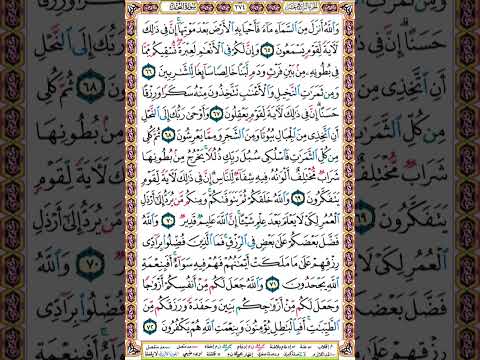 سورة النحل ٢٧٤
وَٱللَّهُ أَنزَلَ مِنَ ٱلسَّمَآءِ مَآءً فَأَحْيَا بِهِ ٱلْأَرْضَ بَعْدَ مَوْتِهَآ إِنَّ فِى ذَٰلِكَ
لَءَايَةً لِّقَوْمٍ يَسْمَعُونَ ٦٥ وَإِنَّ لَكُمْ فِى ٱلْأَنْعَٰمِ لَعِبْرَةً نُّسْقِيكُم مِّمَّا
فِى بُطُونِهِۦ مِنۢ بَيْنِ فَرْثٍ وَدَمٍ لَّبَنًا خَالِصًا سَآئِغًا لِّلشَّٰرِبِينَ ٦٦
وَمِن ثَمَرَٰتِ ٱلنَّخِيلِ وَٱلْأَعْنَٰبِ تَتَّخِذُونَ مِنْهُ سَكَرًا وَرِزْقًا
حَسَنًا إِنَّ فِى ذَٰلِكَ لَءَايَةً لِّقَوْمٍ يَعْقِلُونَ ٦٧ وَأَوْحَىٰ رَبُّكَ إِلَى ٱلنَّحْلِ
أَنِ ٱتَّخِذِى مِنَ ٱلْجِبَالِ بُيُوتًا وَمِنَ ٱلشَّجَرِ وَمِمَّا يَعْرِشُونَ ٦٨ ثُمَّ كُلِى
مِن كُلِّ ٱلثَّمَرَٰتِ فَٱسْلُكِى سُبُلَ رَبِّكِ ذُلُلًا يَخْرُجُ مِنۢ بُطُونِهَا
شَرَابٌ مُّخْتَلِفٌ أَلْوَٰنُهُۥ فِيهِ شِفَآءٌ لِّلنَّاسِ إِنَّ فِى ذَٰلِكَ لَءَايَةً لِّقَوْمٍ
يَتَفَكَّرُونَ ٦٩ وَٱللَّهُ خَلَقَكُمْ ثُمَّ يَتَوَفَّىٰكُمْ وَمِنكُم مَّن يُرَدُّ إِلَىٰٓ أَرْذَلِ
ٱلْعُمُرِ لِكَىْ لَا يَعْلَمَ بَعْدَ عِلْمٍ شَيْـًٔا إِنَّ ٱللَّهَ عَلِيمٌ قَدِيرٌ ٧٠ وَٱللَّهُ
فَضَّلَ بَعْضَكُمْ عَلَىٰ بَعْضٍ فِى ٱلرِّزْقِ فَمَا ٱلَّذِينَ فُضِّلُوا۟ بِرَآدِّى
رِزْقِهِمْ عَلَىٰ مَا مَلَكَتْ أَيْمَٰنُهُمْ فَهُمْ فِيهِ سَوَآءٌ أَفَبِنِعْمَةِ
ٱللَّهِ يَجْحَدُونَ ٧١ وَٱللَّهُ جَعَلَ لَكُم مِّنْ أَنفُسِكُمْ أَزْوَٰجًا
وَجَعَلَ لَكُم مِّنْ أَزْوَٰجِكُم بَنِينَ وَحَفَدَةً وَرَزَقَكُم مِّنَ
ٱلطَّيِّبَٰتِ أَفَبِٱلْبَٰطِلِ يُؤْمِنُونَ وَبِنِعْمَتِ ٱللَّهِ هُمْ يَكْفُرُونَ ٧٢